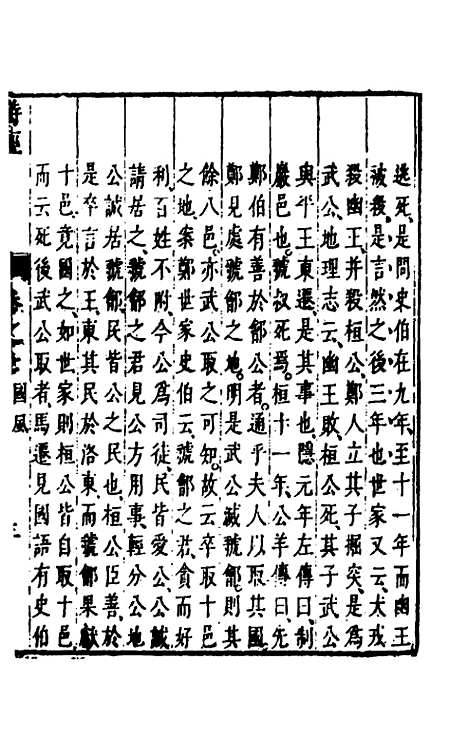 逃死是問史伯在九年至十一年而幽王
被殺是言然之後三年也世家又云犬戎
殺幽王并殺桓公鄭人立其子掘突是爲
武公地理志云幽王敗桓公死其子武公
與平王東遷是其事也隱元年左傳曰制
巖邑也虢叔死焉桓十一年公羊傳曰先
鄭伯有善於鄶公者通乎夫人以取其國
鄭見處虢鄶之地明是武公滅虢鄶則其
餘八邑亦武公取之可知故云卒取十邑
之地案鄭世家史伯云虢鄶之君貪而好
利百姓不附今公爲司徒民皆愛公公誠
請居之虢鄶之君見公方用事輕分公地
公誠居虢鄶民皆公之民也桓公臣善於
是卒言於王東其民於洛東而虢鄶果獻
十邑竟國之如世家則桓公皆自取十邑
而云死後武公取者馬遷見國語有史伯
詩經 卷之七 國風 三